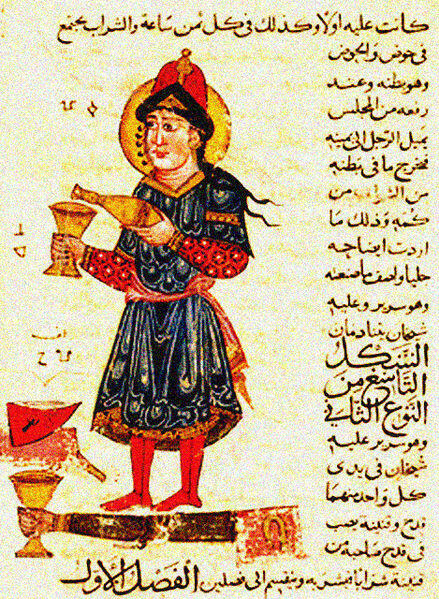 كانت عليه اولا وكذلك في كل ثمن ساعة والشراب يجتمع
في حوض والحوض
وهو بطنه وعند
رفعه من المجلس
يميل الرجل الى يمينه
فيخرج ما في بطنه
من الشراب من
كمه وذلك ما
اردت ايضاحه
ما صنعته
وهو سرير وعليه
شيخان
الشكل
التاسع من
النوع الثاني
وهو سرير عليه
شيخان في يدي
كل واحد منهما
قدح وقنينة يصب
في قدح صاحبه من
قنينته شرابا فيشربه وينقسم الى فصلين الفصل الاول